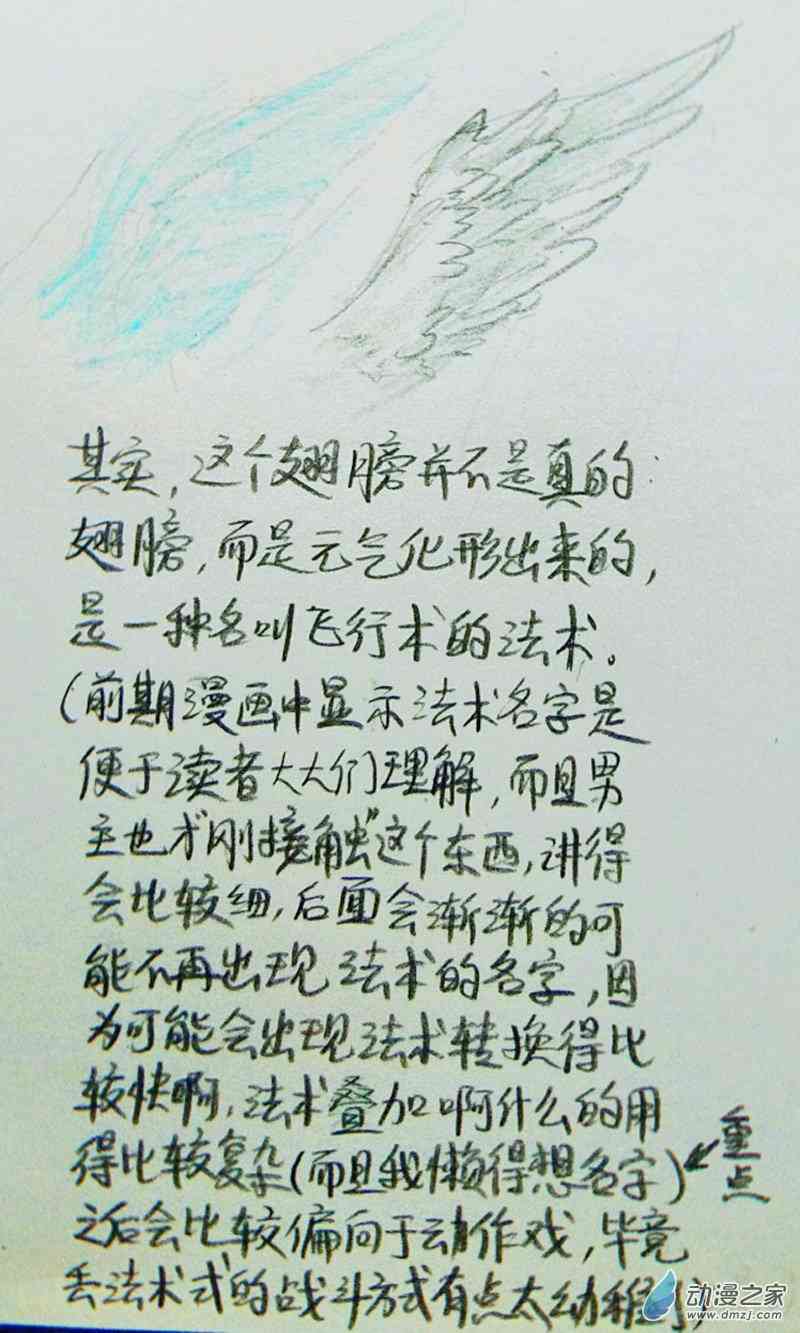 其实,这个翅膀并不是真的
翅膀,而是元气化形出来的,
是一种名叫飞行术的法术。
(前期漫画中显示法术名字是
便于读者大大们理解,而且男
主也才"刚接触"这个东西,讲得
会比较细,后面会渐渐的可
能不再出现法术的名字,因
为可能会出现法术转换得比
较快啊,法术叠加啊什么的用
得比较复杂(而且我懒得想名字)
重点
之后会比较偏向于动作戏,毕竟
丢法术式的战斗方式有点太幼稚了)
动漫之家
www.dmzj.com